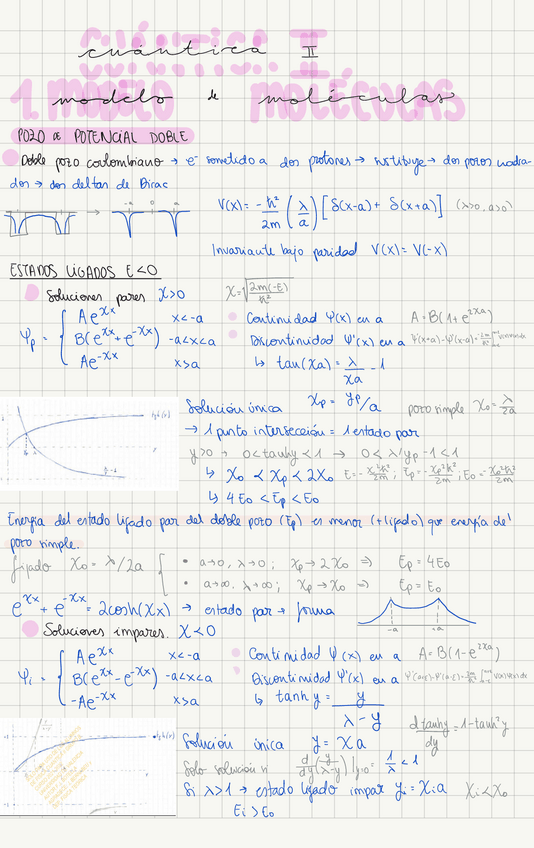 cuántica II
1. modelo de moléculas
POZO DE POTENCIAL DOBLE
Doble pozo coulombiano → e⁻ sometido a dos protones → sustituye → dos pozos cuadra-
dos → dos deltas de Dirac
-a 0 a
V(x) = -ħ²/2m (λ/a) [δ(x-a) + δ(x+a)] (λ>0, a>0)
Invariante bajo paridad V(x) = V(-x)
ESTADOS LIGADOS E<0
Soluciones pares X>0 X = √(2m(-E)/ħ²)
Ψp = { Ae^Xx x<-a
B(e^Xx + e^-Xx) -a<x<a
Ae^-Xx x>a
Continuidad Ψ(x) en a A = B(1+e^2Xa)
Discontinuidad Ψ'(x) en a
↳ tan(Xa) = λ/Xa - 1
Solución única Xp = yp/a pozo simple X₀ = λ/2a
→ 1 punto intersección = 1 estado par
y>0 → 0<tanhy<1 → 0<λ/yp-1<1
↳ X₀ < Xp < 2X₀ E = -X²ħ²/2m ; Ep = -Xp²ħ²/2m ; E₀ = -X₀²ħ²/2m
↳ 4E₀ < Ep < E₀
Energía del estado ligado par del doble pozo (Ep) es menor (+ligado) que energía del
pozo simple.
fijado X₀ = λ/2a { • a→0, λ→0 ; Xp→2X₀ ⇒ Ep = 4E₀
• a→∞, λ→∞ ; Xp→X₀ ⇒ Ep = E₀
e^Xx + e^-Xx = 2cosh(Xx) → estado par → forma
-a +a
Soluciones impares. X<0
Ψi = { Ae^Xx x<-a
B(e^Xx - e^-Xx) -a<x<a
-Ae^-Xx x>a
Continuidad Ψ(x) en a A = B(1-e^2Xa)
Discontinuidad Ψ'(x) en a
↳ tanh y = y/(λ-y)
dtanhy/dy = 1-tanh²y
Solución única y = Xa
Solo solución si d/dy (y/(λ-y))|y=0 = 1/λ < 1
Si λ>1 → estado ligado impar yi = Xia Xi<X₀
Ei > E₀